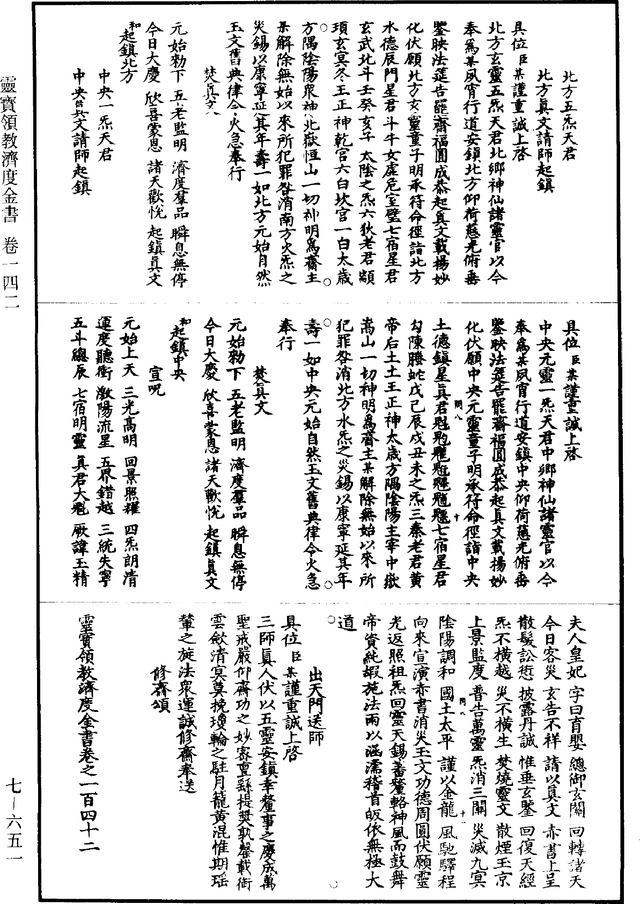 北方五炁天君
北方眞文請師起鎮
具位臣某謹重誠上啓
北方玄靈五炁天君北鄉神仙諸靈官以今
奉爲某夙宵行道安鎮北方仰荷慈光俯垂
鑒映法筵告罷齋福圓成恭起眞文載揚妙
化伏願北方玄靈童子明承符命徑詣北方
水德辰門星君斗牛女虛危室壁七宿星君
玄武北斗壬癸亥子太陰之炁六狄老君顓
頊玄冥冬王正神乾宮六白坎宮一白太歲
方隅陰陽衆神北嶽恒山一切神明爲齋主
某解除無始以來所犯罪咎消南方火炁之
災錫以康寧延其年壽一如北方元始自然
玉文舊典律令火急奉行
焚眞文
元始勑下 五老監明 濟度羣品 瞬息無停
今日大慶 欣喜蒙恩 諸天歡悅 起鎮眞文
和起鎮北方
中央一炁天君
中央眞文請師起鎮
具位臣某謹重誠上啓
中央元靈一炁天君中鄉神仙諸靈官以今
奉爲某夙宵行道安鎮中央仰荷慈光俯垂
鑒映法筵告罷齋福圓成恭起眞文載揚妙
化伏願中央元靈童子明承符命徑詣中央
土德鎮星眞君魁𩲃䰢魓䰡魒七宿星君
勾陳螣蛇戊己辰戌丑未之炁三秦老君黃
帝后土土王正神太歲方隅陰陽主宰中嶽
嵩山一切神明爲齋主某解除無始以來所
犯罪咎消北方水炁之災錫以康寧延其年
壽一如中央元始自然玉文舊典律令火急
奉行
焚眞文
元始勑下 五老監明 濟度羣品 瞬息無停
今日大慶 欣喜蒙恩 諸天歡悅 起鎮眞文
和起鎮中央
宣呪
元始上天 三光高明 回景照耀 四炁朗清
運度聽衡 激陽流星 五界錯越 三統失寧
五斗總辰 七宿明靈 眞君大魁 厥諱玉精
夫人皇妃 字曰育嬰 總御玄關 回轉諸天
今日客災 玄告不祥 請以眞文 赤書上呈
散髮訟愆 披露丹誠 惟垂玄鑒 回復天經
炁不橫越 災不橫生 焚燒靈文 散煙玉京
上景監度 普告萬靈 炁消三關 災滅九冥
陰陽調和 國土太平 謹以金龍 風馳驛程
向來宣演赤書消災玉文功德周圓伏願靈
光返照祖炁回靈天錫蕃釐輅神風而鼓舞
帝資純嘏施法雨以涵濡稽首皈依無極大
道
出天門送師
具位臣某謹重誠上啓
三師眞人伏以五靈安鎮幸釐事之慶成萬
聖戒嚴仰齋功之妙
雲歛清冥莫挽瓊輪之駐月籠黃混惟期瑤
輦之旋法衆運誠修齋奉送
修齋頌
靈寶領教濟度金書卷之一百四十二
靈寶領教濟度金書 卷一四二
七—六五一